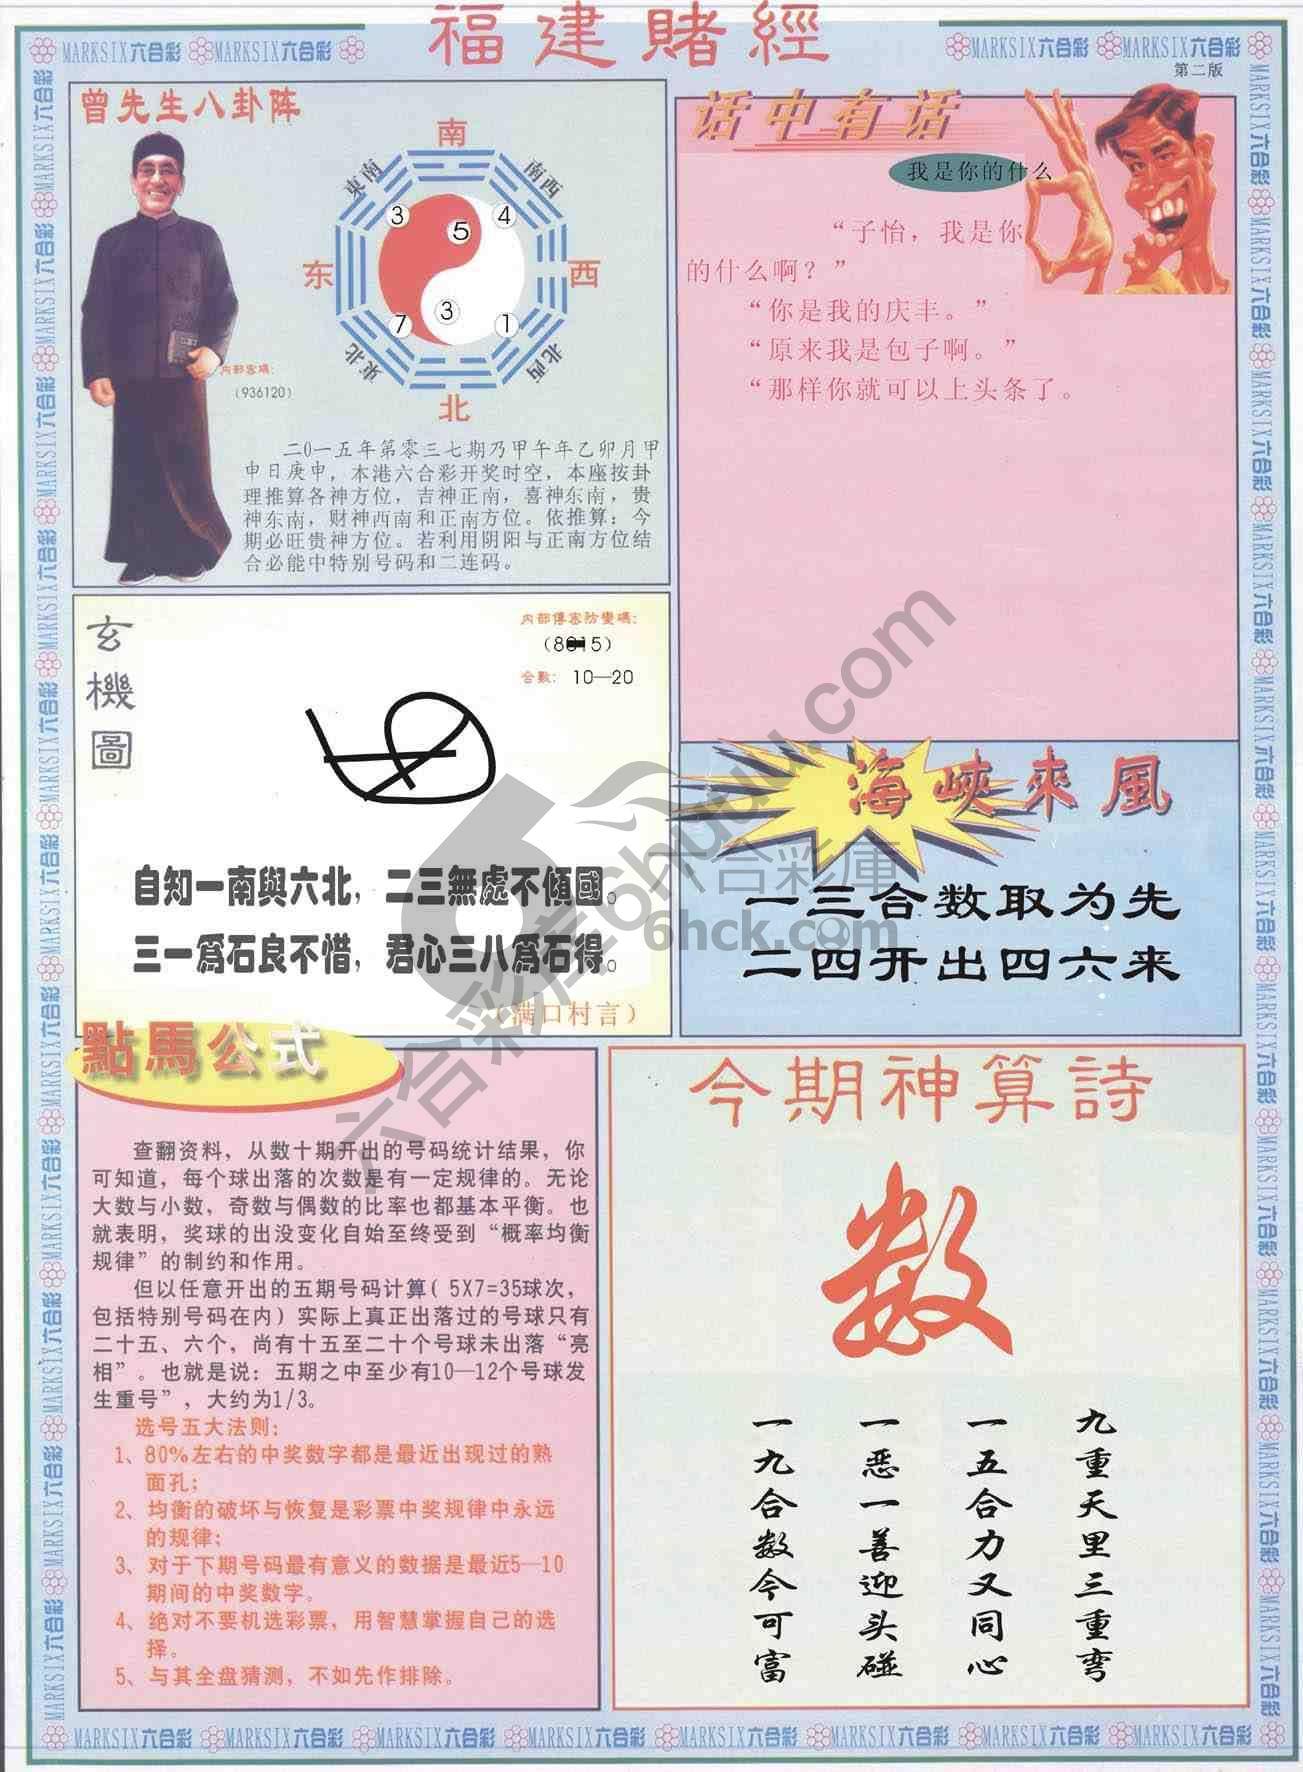 福建賭經
MARKSIX六合彩 MARKSIX六合彩
MARKSIX六合彩 MARKSIX六合彩
第二版
曾先生八卦阵
南
東南
南西
3
5
4
东
西
7
3
1
東北
北西
北
内部密碼:
(936120)
二0一五年第零三七期乃甲午年乙卯月甲
申日庚申，本港六合彩开奖时空，本座按卦
理推算各神方位，吉神正南，喜神东南，贵
神东南，财神西南和正南方位。依推算：今
期必旺贵神方位。若利用阴阳与正南方位结
合必能中特别号码和二连码。
话中有话
我是你的什么
“子怡，我是你
的什么啊？”
“你是我的庆丰。”
“原来我是包子啊。”
“那样你就可以上头条了。
玄機圖
内部傳密防變碼:
合數: 10—20
自知一南與六北，二三無處不傾國。
三一爲石良不惜，君心三八爲石得。
（满口村言）
海峽來風
一三合数取为先
二四开出四六来
六合彩庫
6hck.com
六合彩库6huuu.com
點馬公式
查翻资料，从数十期开出的号码统计结果，你
可知道，每个球出落的次数是有一定规律的。无论
大数与小数，奇数与偶数的比率也都基本平衡。也
就表明，奖球的出没变化自始至终受到“概率均衡
规律”的制约和作用。
但以任意开出的五期号码计算( 5X7=35球次，
包括特别号码在内）实际上真正出落过的号球只有
二十五、六个，尚有十五至二十个号球未出落“亮
相”。也就是说：五期之中至少有10—12个号球发
生重号”，大约为1/3。
选号五大法则：
1、80%左右的中奖数字都是最近出现过的熟
面孔；
2、均衡的破坏与恢复是彩票中奖规律中永远
的规律；
3、对于下期号码最有意义的数据是最近5—10
期间的中奖数字。
4、绝对不要机选彩票，用智慧掌握自己的选
择。
5、与其全盘猜测，不如先作排除。
今期神算詩
数
九重天里三重弯
一五合力又同心
一恶一善迎头碰
一九合数今可富
MARKSIX六合彩 MARKSIX六合彩 MARKSIX六合彩 MARKSIX六合彩 MARKSIX六合彩 MARKSIX六合彩 MARKSIX六合彩 MARKSIX六合彩